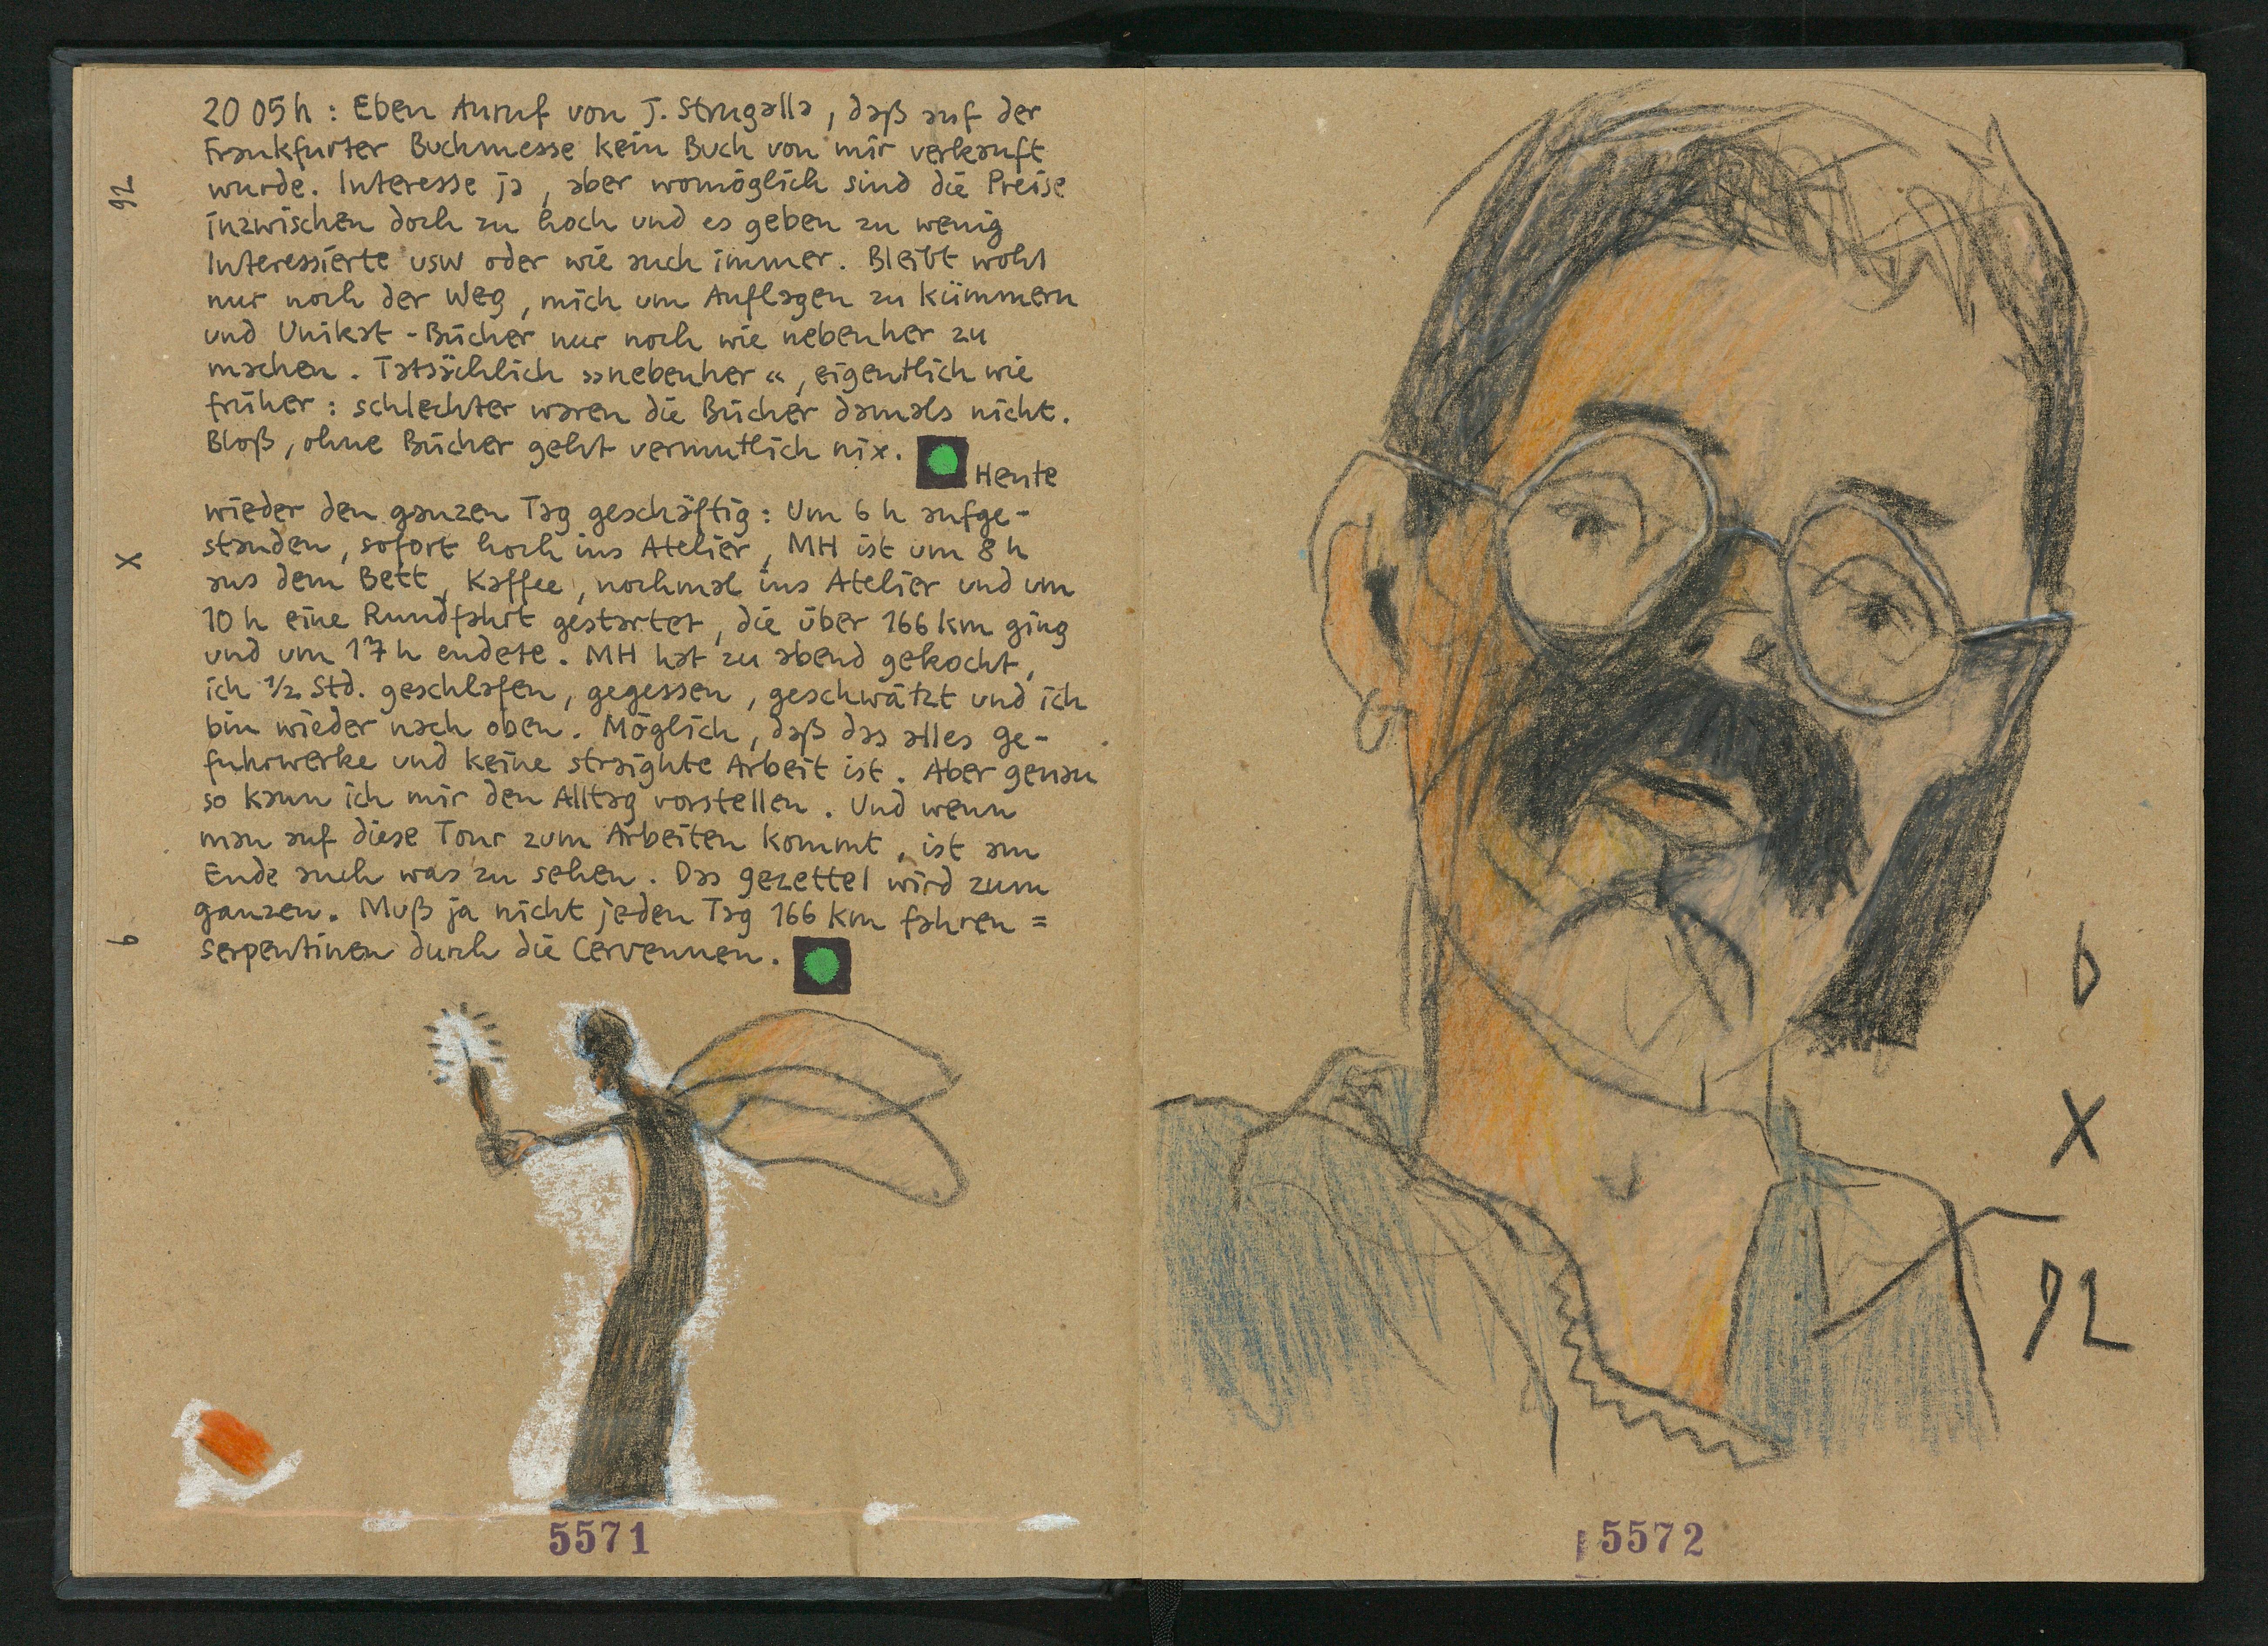 92
X
6
20 05 h : Eben Anruf von J. Strugalla, daß auf der
Frankfurter Buchmesse kein Buch von mir verkauft
wurde. Interesse ja, aber womöglich sind die Preise
inzwischen doch zu hoch und es geben zu wenig
Interessierte usw oder wie auch immer. Bleibt wohl
nur noch der Weg, mich um Auflagen zu kümmern
und Unikat-Bücher nur noch wie nebenher zu
machen. Tatsächlich »nebenher«, eigentlich wie
früher: schlechter waren die Bücher damals nicht.
Bloß, ohne Bücher geht vermutlich nix.
Heute
wieder den ganzen Tag geschäftig: Um 6 h aufge-
standen, sofort hoch ins Atelier, MH ist um 8 h
aus dem Bett, Kaffee, nochmal ins Atelier und um
10 h eine Rundfahrt gestartet, die über 166 km ging
und um 17 h endete. MH hat zu abend gekocht,
ich ½ Std. geschlafen, gegessen, geschwätzt und ich
bin wieder nach oben. Möglich, daß das alles ge-
fuhrwerke und keine straighte Arbeit ist. Aber genau
so kann ich mir den Alltag vorstellen. Und wenn
man auf diese Tour zum Arbeiten kommt, ist am
Ende auch was zu sehen. Das gezettel wird zum
ganzen. Muß ja nicht jeden Tag 166 km fahren =
serpentinen durch die Cervennen.
5571
6
X
92
5572